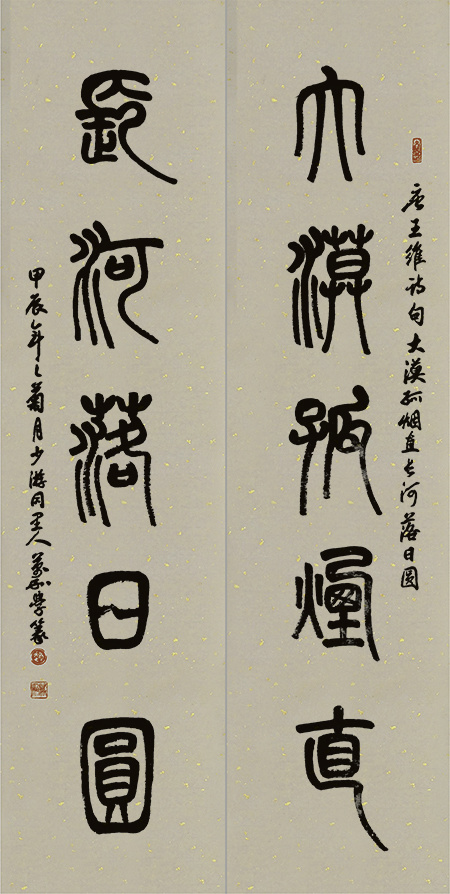 唐王維詩句大漠孤烟直長河落日圓
大漠孤煙直
長河落日圓
甲辰年之菊月少游同里人學篆